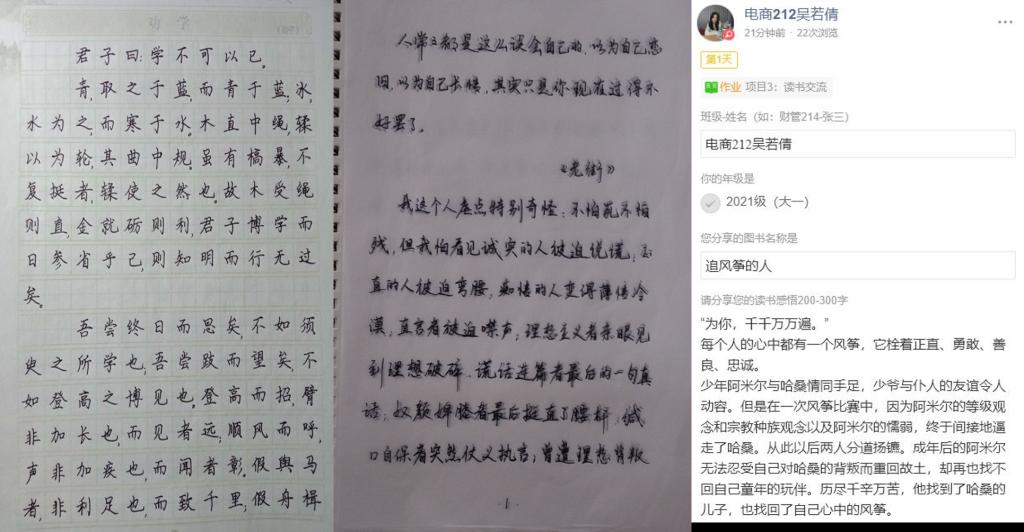 劝学
君子曰:学不可以已。
青,取之于蓝,而青于蓝,冰,
水为之,而寒于水。木直中绳,𫐓
以为轮,其曲中规,虽有槁暴,不
复挺者,𫐓使之然也,故木受绳
则直,金就砺则利,君子博学而
日参省乎己,则知明而行无过
矣。
吾尝终日而思矣,不如须
臾之所学也,吾尝跂而望矣,不
如登高之博见也。登高而招,臂
非加长也,而见者远,顺风而呼,
声非加疾也,而闻者彰,假舆马
者,非利足也,而致千里,假舟楫
人常常都是这么误会自己的,以为自己恋
旧,以为自己长情,其实只是你现在过得不
好罢了。
《老街》
我这个人虐点特别奇怪:不怕死不怕
残,但我怕看见诚实的人被迫说谎,正
直的人被迫弯腰,痴情的人变得薄情冷
漠,直言者被迫噤声,理想主义者亲眼见
到理想破碎。谎话连篇者最后的一句真
话,奴颜婢膝者最后挺直了腰杆,缄
口自保者突然仗义执言,曾遭理想背叛
1
电商212吴若倩
21分钟前 · 22次浏览
第1天
作业 项目3:读书交流
班级-姓名(如:财管214-张三)
电商212吴若倩
你的年级是
2021级(大一)
您分享的图书名称是
追风筝的人
请分享您的读书感悟200-300字
“为你,千千万万遍。”
每个人的心中都有一个风筝,它拴着正直、勇敢、善
良、忠诚。
少年阿米尔与哈桑情同手足,少爷与仆人的友谊令人
动容。但是在一次风筝比赛中,因为阿米尔的等级观
念和宗教种族观念以及阿米尔的懦弱,终于间接地逼
走了哈桑。从此以后两人分道扬镳。成年后的阿米尔
无法忍受自己对哈桑的背叛而重回故土,却再也找不
回自己童年的玩伴。历尽千辛万苦,他找到了哈桑的
儿子,也找回了自己心中的风筝。